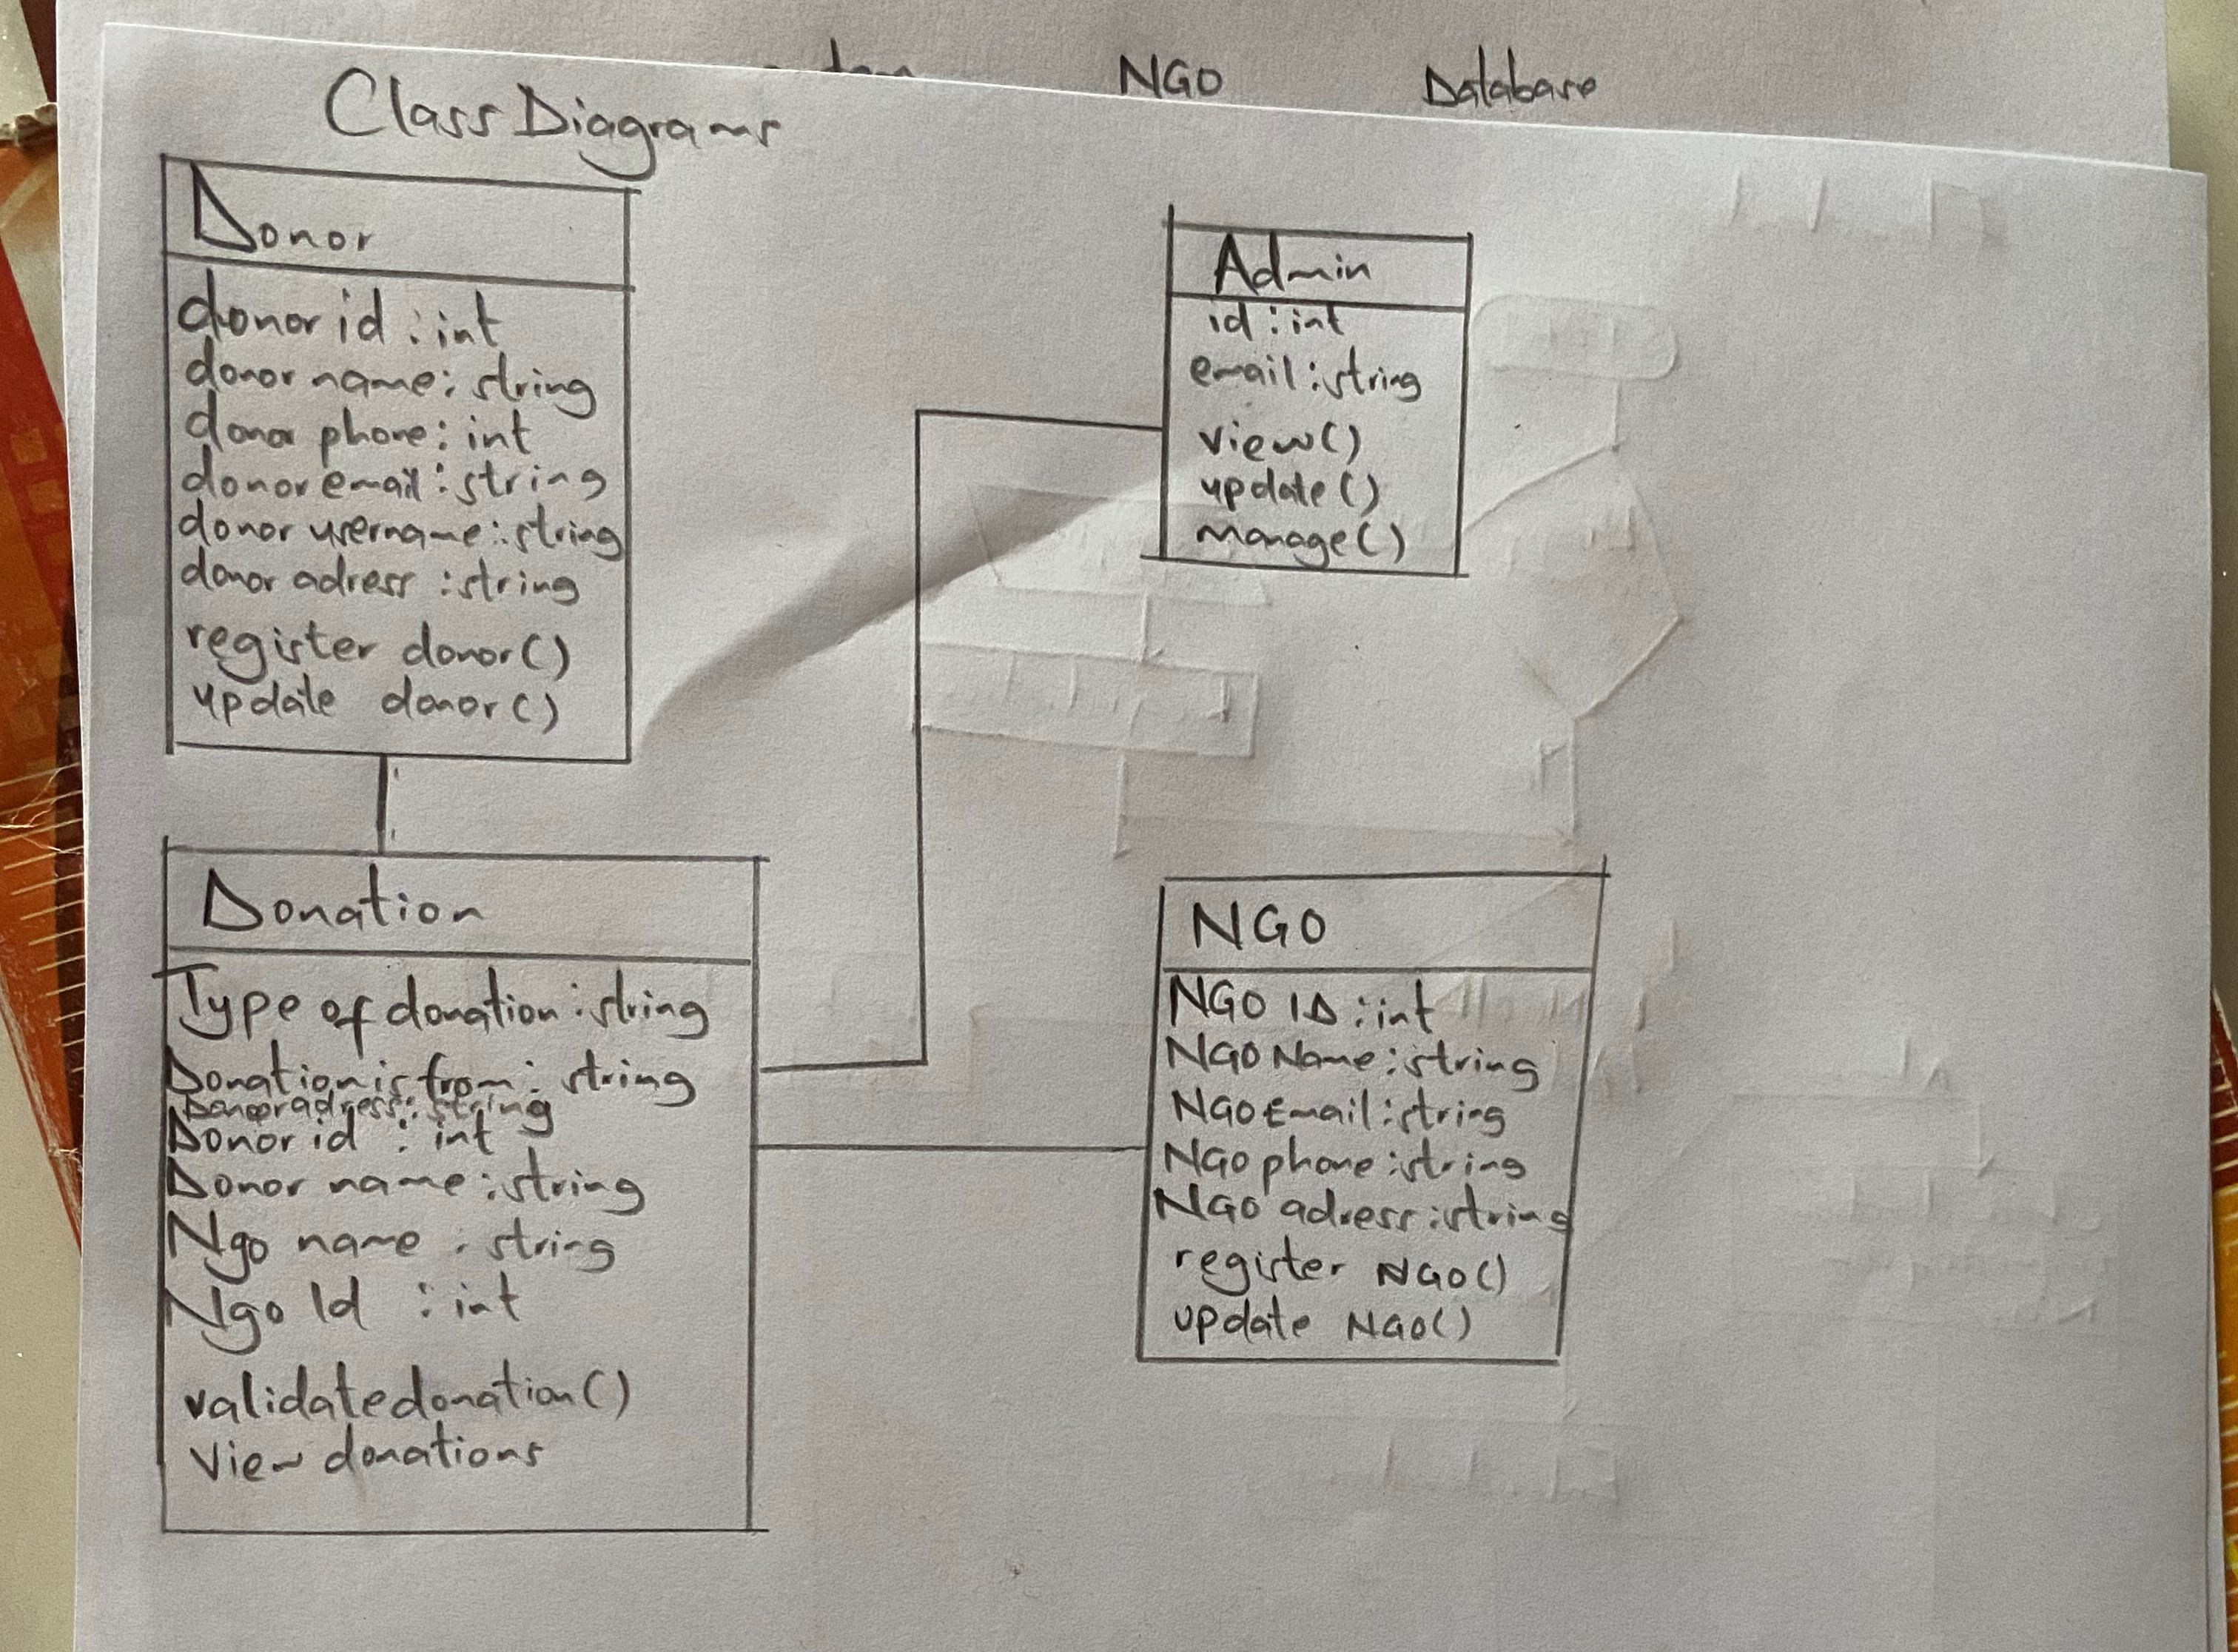 NGO
Database
Class Diagrams
Donor
donor id : int
donor name : string
donor phone : int
donor email : string
donor username : string
donor adress : string
register donor()
update donor()
Admin
id : int
email : string
view()
update()
manage()
Donation
Type of donation : string
Donation is from : string
Donor adress : string
Donor id : int
Donor name : string
Ngo name : string
Ngo Id : int
validatedonation()
View donations
NGO
NGO ID : int
NGO Name : string
NGO Email : string
NGO phone : string
NGO adress : string
register NGO()
update NGO()